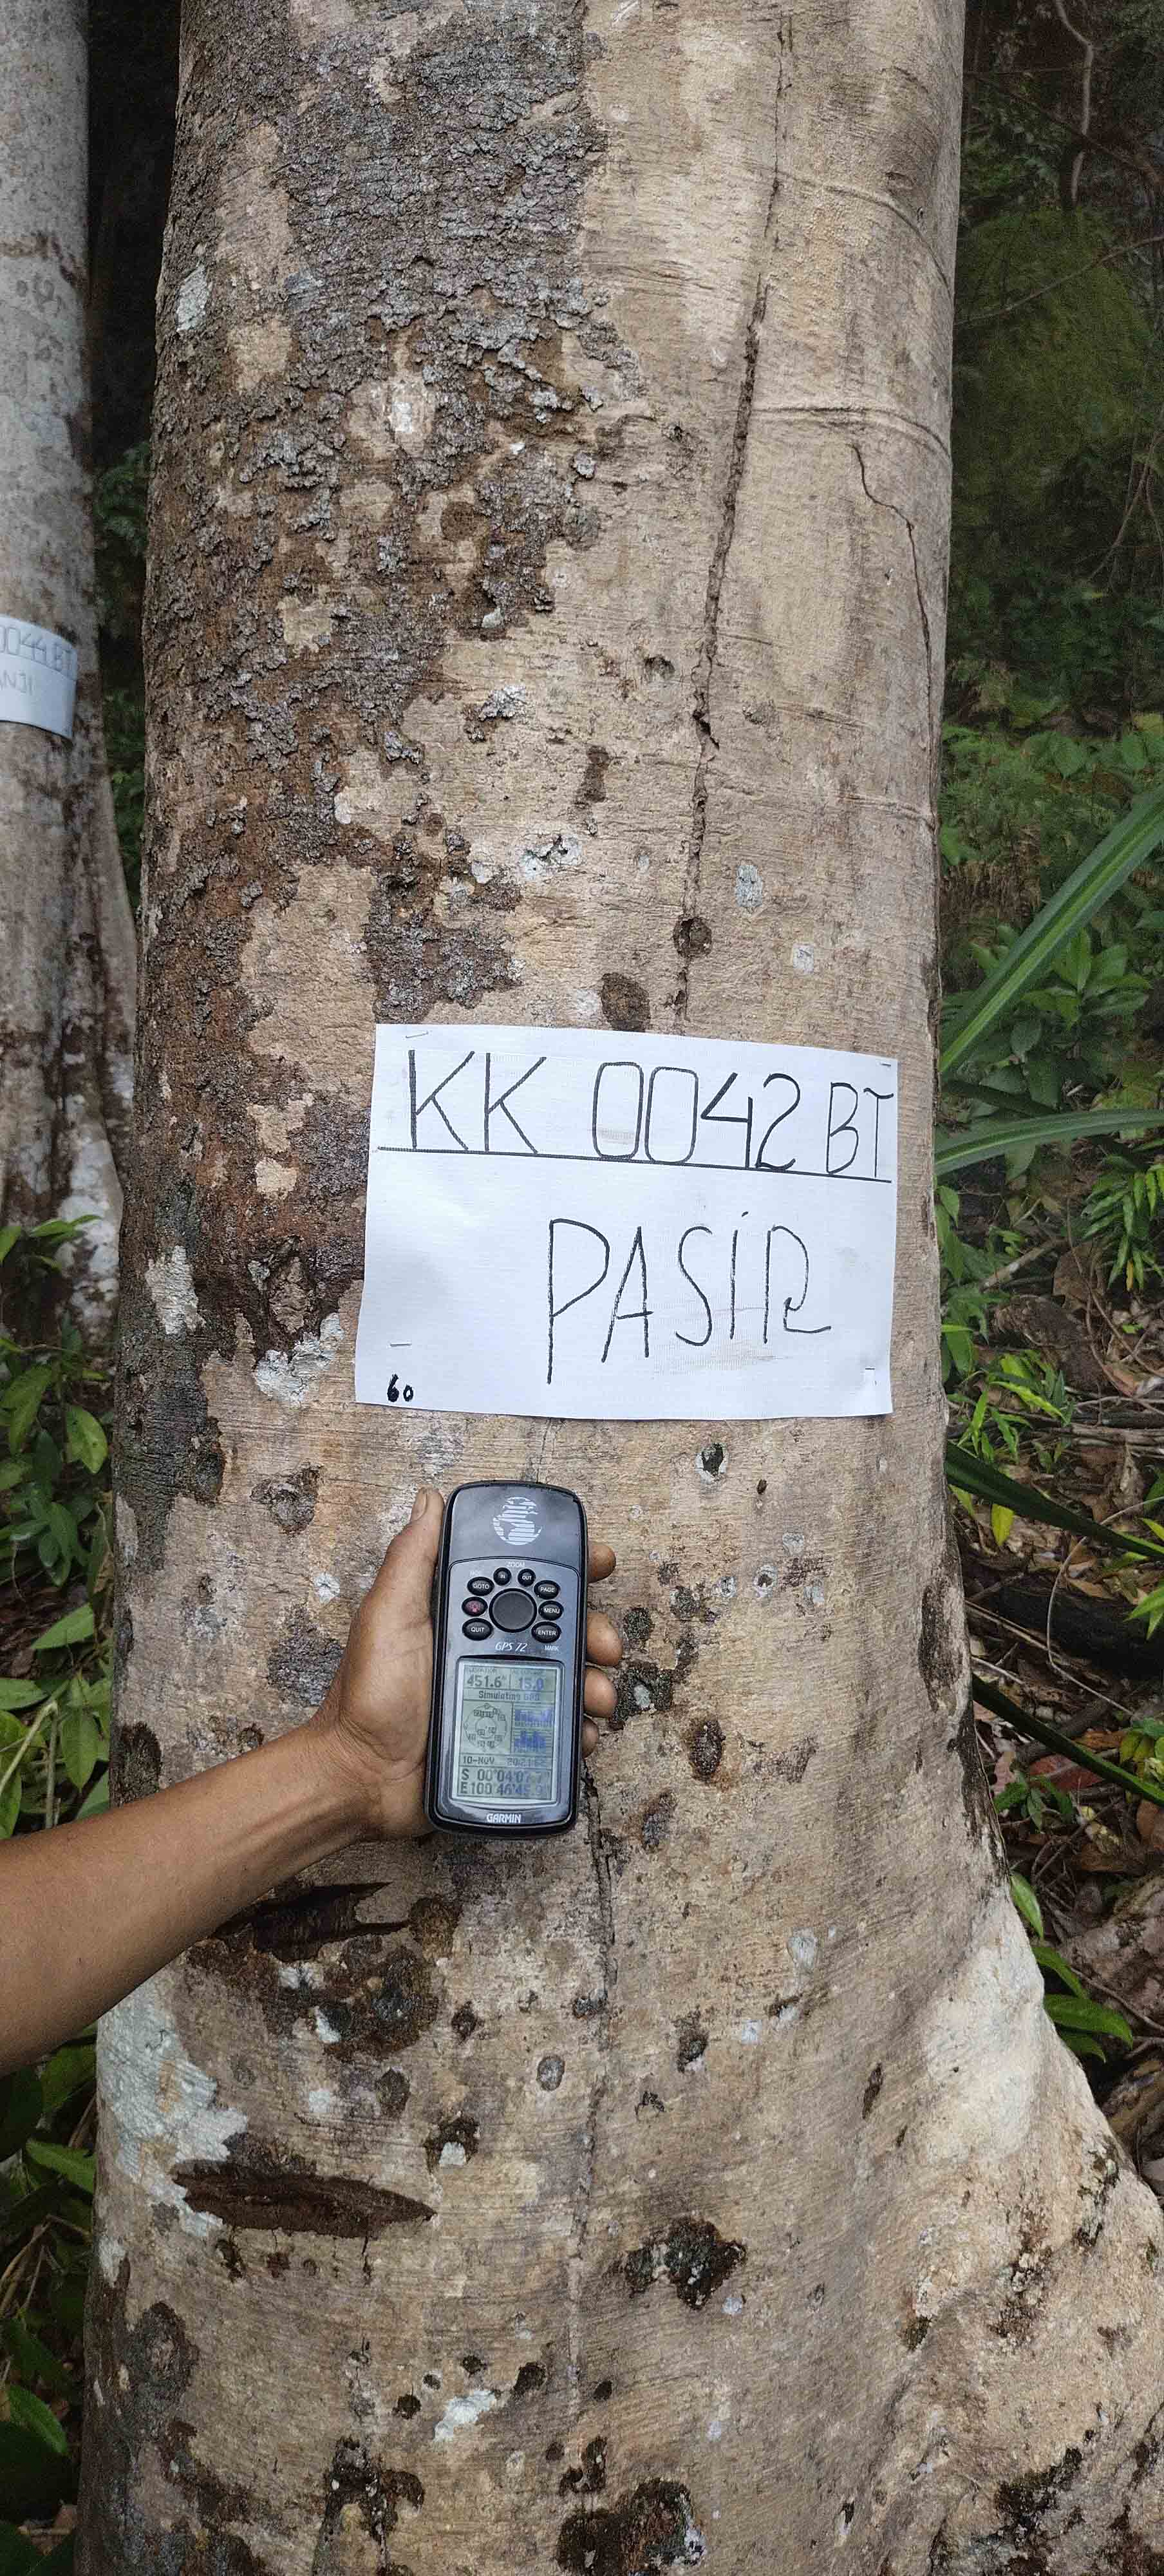 0044 BT
ANJI
KK 0042 BT
PASIR
60
ZOOM
IN OUT
GOTO PAGE
MENU
QUIT ENTER
GPS 72 MARK
451.6 15.0
Simulating GPS
10-NOV
S 00°04'07
E100°46'4
GARMIN